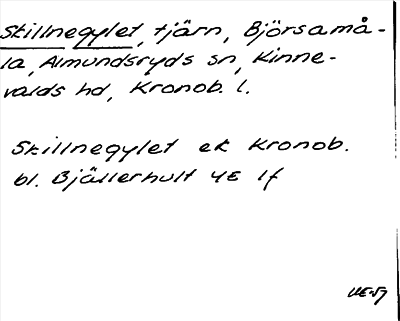 Skillnegylet, tjärn, Björsamå-
la, Almundsryds sn, Kinne-
valds hd, Kronob. l.
Skillnegylet ek Kronob.
bl. Bjällerhult 4E 1f